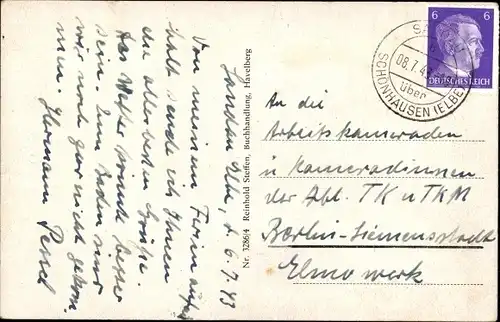 Sandau Elbe, d. 6.7.43
Von meinem Ferien aufent
halt sende ich Ihnen
die allerbesten Grüße.
Das Wetter könnte besser
sein. Zum Baden sind
wir noch gar nicht gekom
men. Hermann Pessel
Nr. 3286/4 Reinhold Steffen, Buchhandlung, Havelberg
08.7.4
über
SCHÖNHAUSEN (ELBE)
6 6
DEUTSCHES REICH
An die
Arbeitskameraden
u Kameradinnen
der Abt. TK u TKM
Berlin-Siemensstadt
Elmowerk